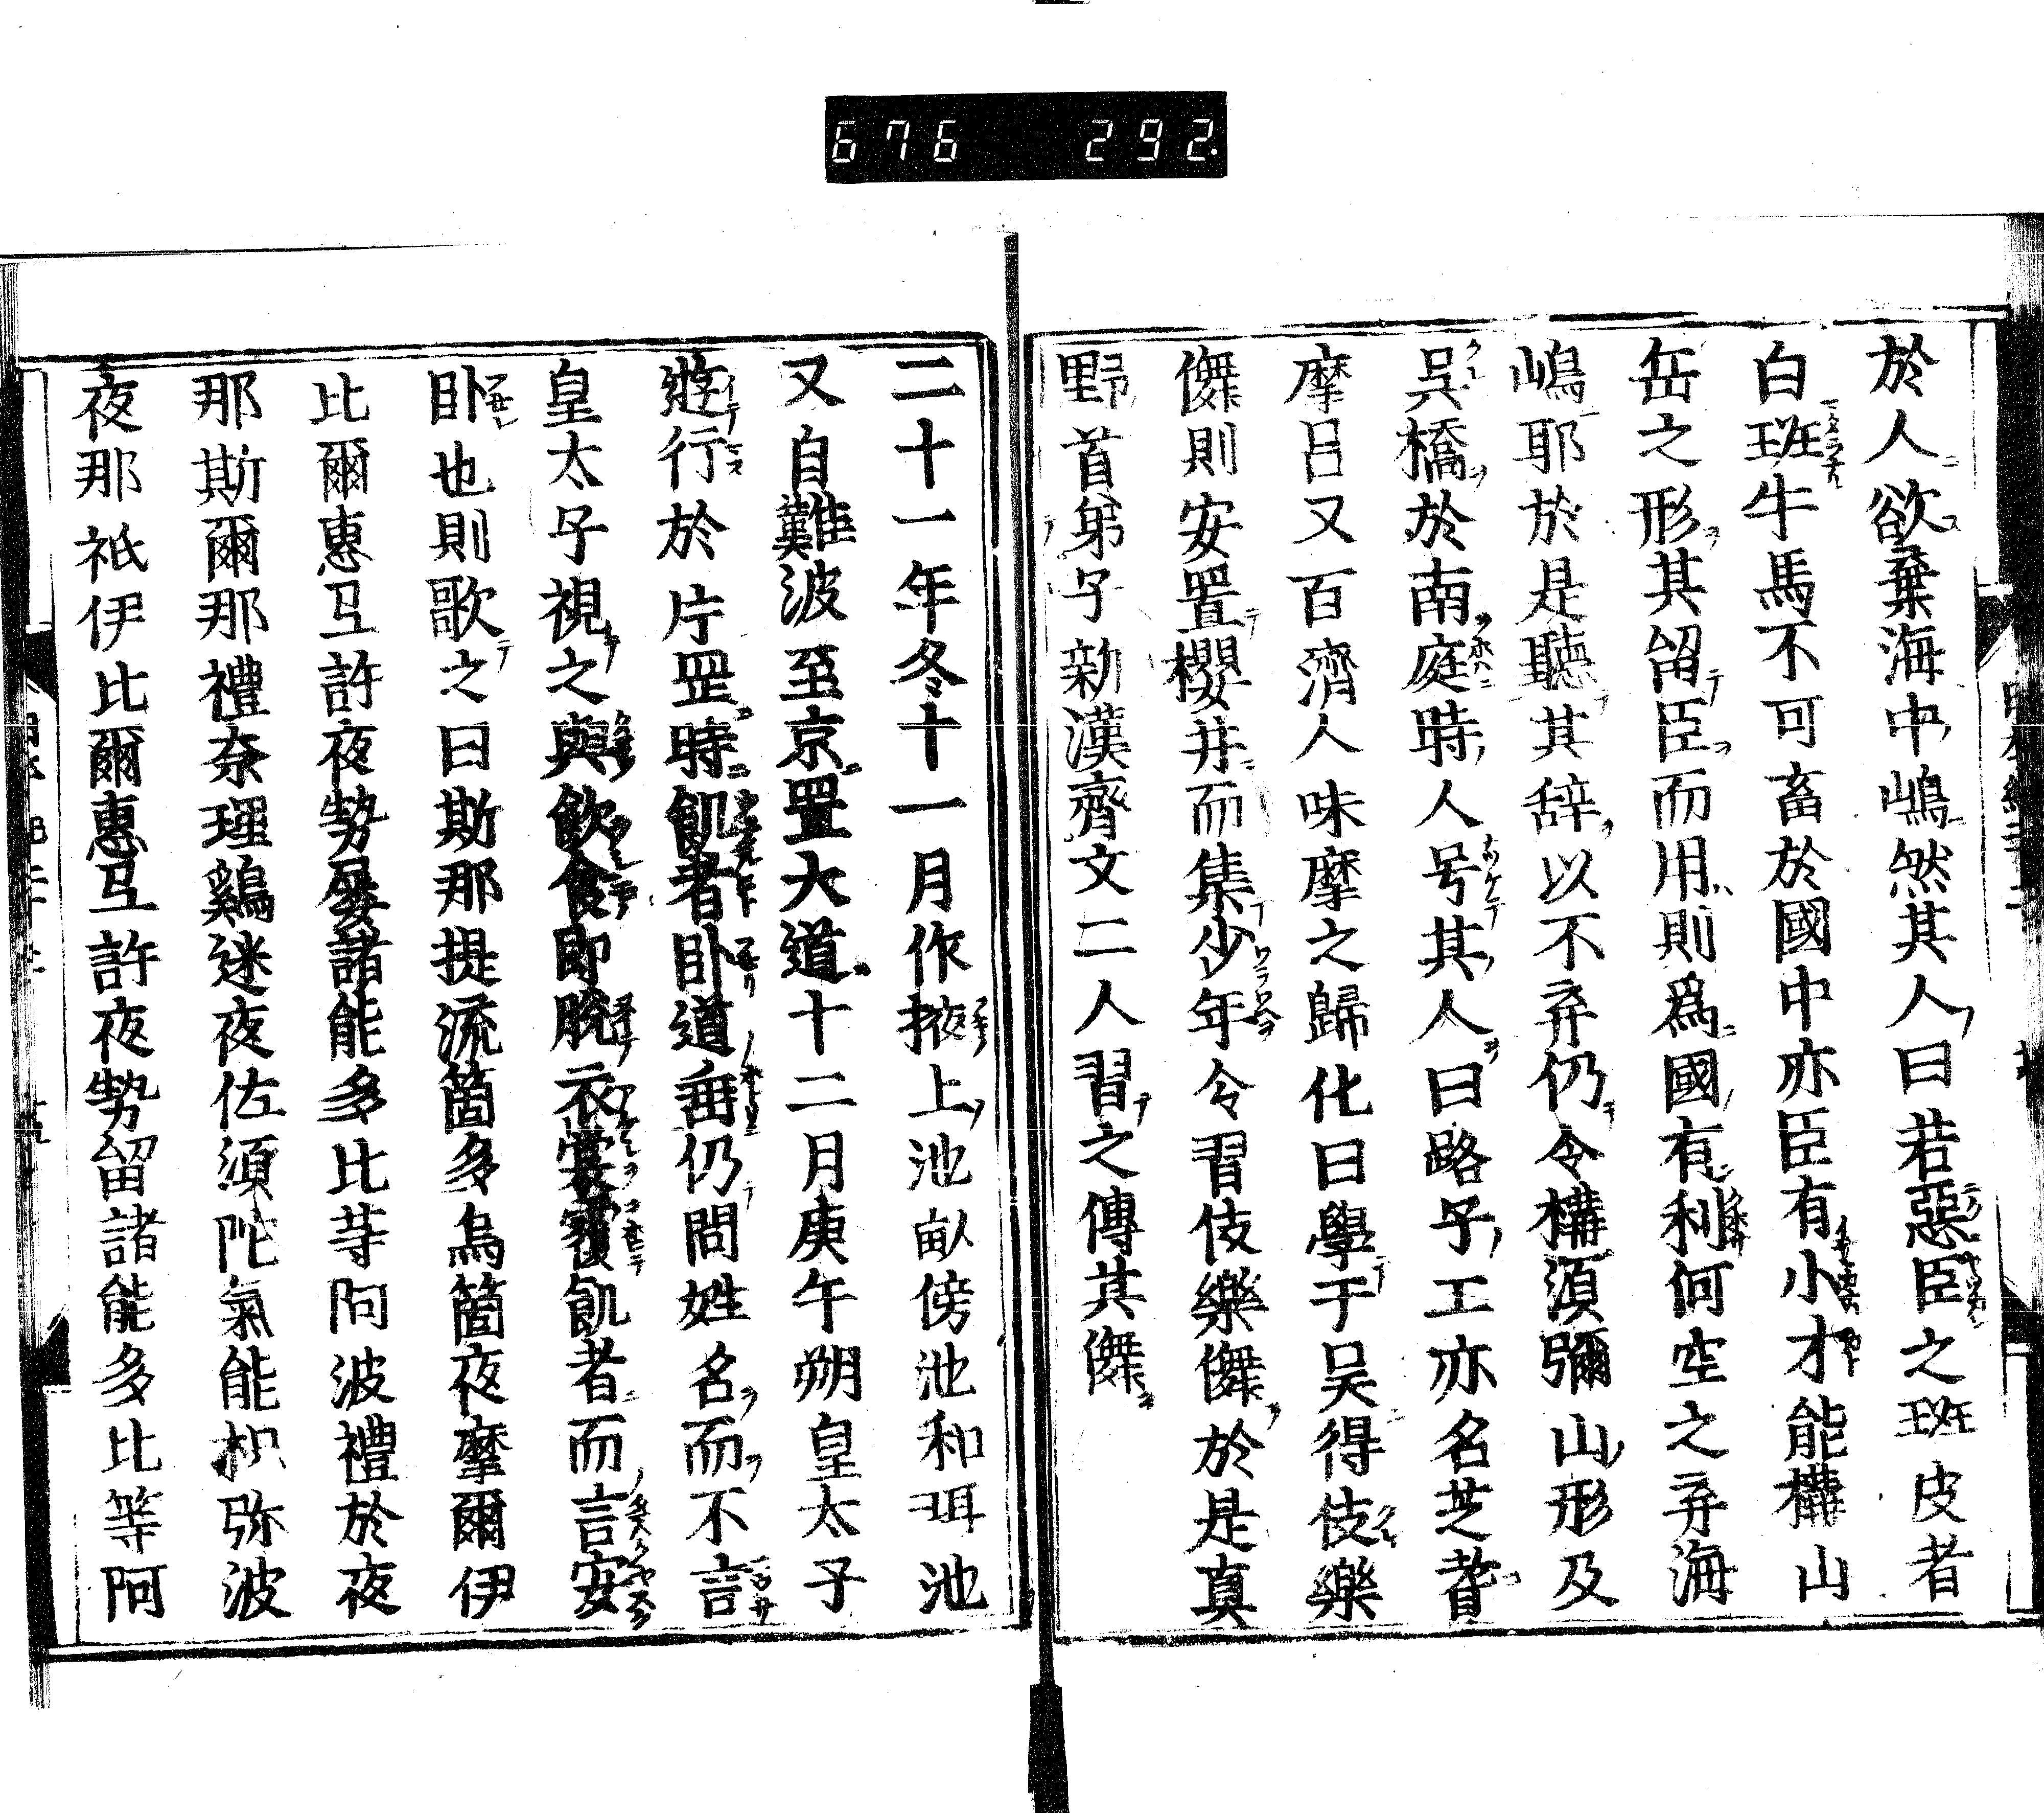 676 292.
於人欲棄海中嶋然其人曰若惡臣之斑皮者
白斑牛馬不可畜於國中亦臣有小才能構山
岳之形其留臣而用則爲國有利何空之弃海
嶋耶於是聽其辞以不弃仍令構須彌山形及
吴橋於南庭時人号其人曰路子工亦名芝耆
摩呂又百濟人味摩之歸化曰學于吴得伎樂
儛則安置櫻井而集少年令習伎樂儛於是真
野首弟子新漢齊文二人習之傳其儛
二十一年冬十一月作掖上池畝傍池和珥池
又自難波至京置大道十二月庚午朔皇太子
遊行於片罡時飢者臥道垂仍問姓名而不言
皇太子視之與飲食即脫衣裳覆飢者而言安
臥也則歌之曰斯那提流箇多烏箇夜摩爾伊
比爾惠弖許夜勢屡諸能多比等阿波禮於夜
那斯爾那禮奈理鷄迷夜佐須陀氣能枳弥波
夜那祇伊比爾惠弖許夜勢留諸能多比等阿